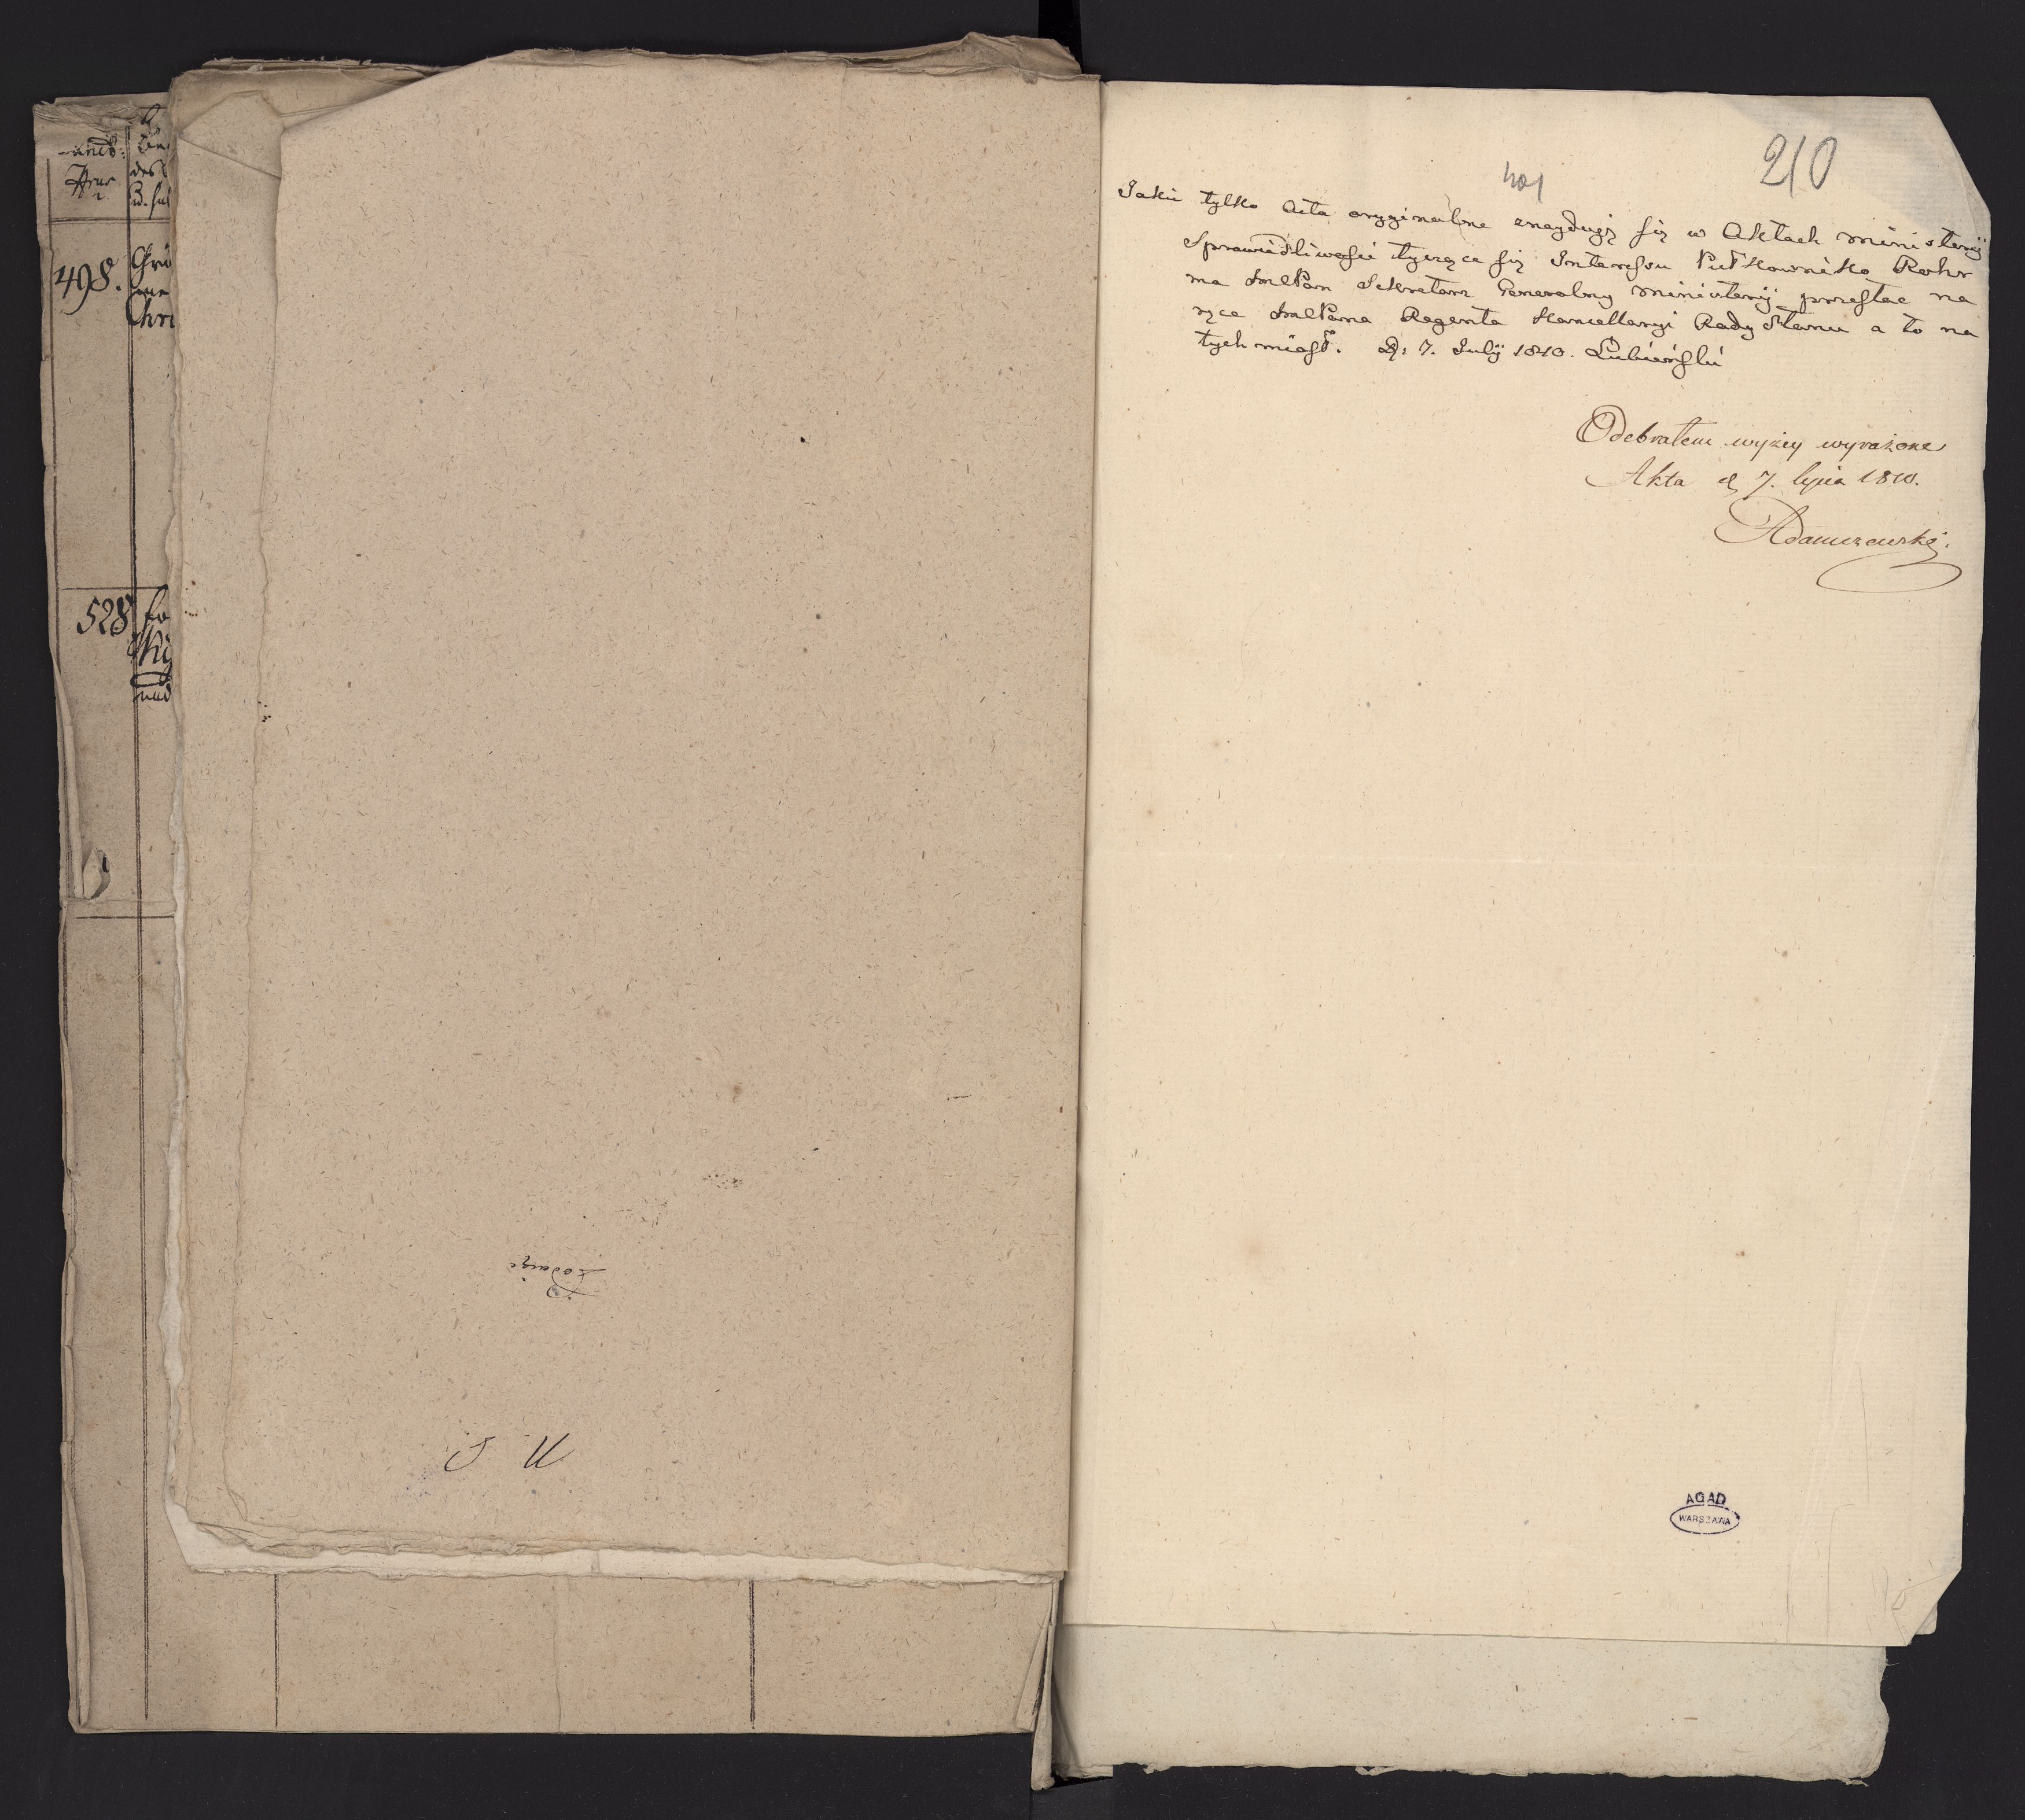 498.
528
Podaię
S K
210
401
Jakie tylko Acta oryginalne znayduią się w Aktach Ministerij
Sprawiedliwości tyczące się Interessu Pułkownika Rohr
ma JmPan Sekretarz Generalny Ministerij przesłac na
ręce JmPana Regenta Kancellaryi Rady Stanu a to na
tych miast. D: 7. Julij 1810. Łubieński
Odebrałem wyżey wyrażone
Akta d 7. lipca 1810.
Adamczewski.
AGAD
WARSZAWA